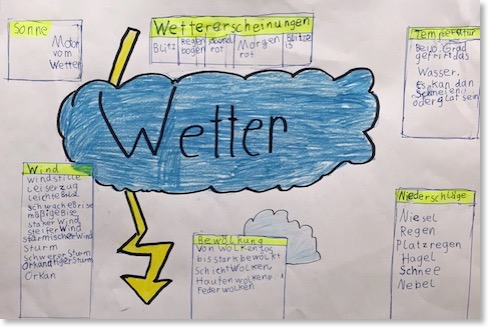 Sonne
Motor
vom
Wetter
Wettererscheinungen
Blitz
Regen
bogen
Abend
rot
Morgen
rot
Blitze
is
Temperatur
Bei 0 Grad
gefriert das
Wasser.
Es kan dan
Schneien
oder glat sein
Wetter
Wind
Windstille
Leiser zug
Leichte Brise
schwache Brise
mäßige Brise
starker Wind
steifer Wind
stürmischer Wind
Sturm
Schwerer Sturm
Orkanartiger Sturm
Orkan
Bewölkung
Von Wolkenlos
bis stark bewölkt
Schichtwolken
Haufenwolken
Federwolken
Niederschläge
Niesel
Regen
Platzregen
Hagel
Schnee
Nebel